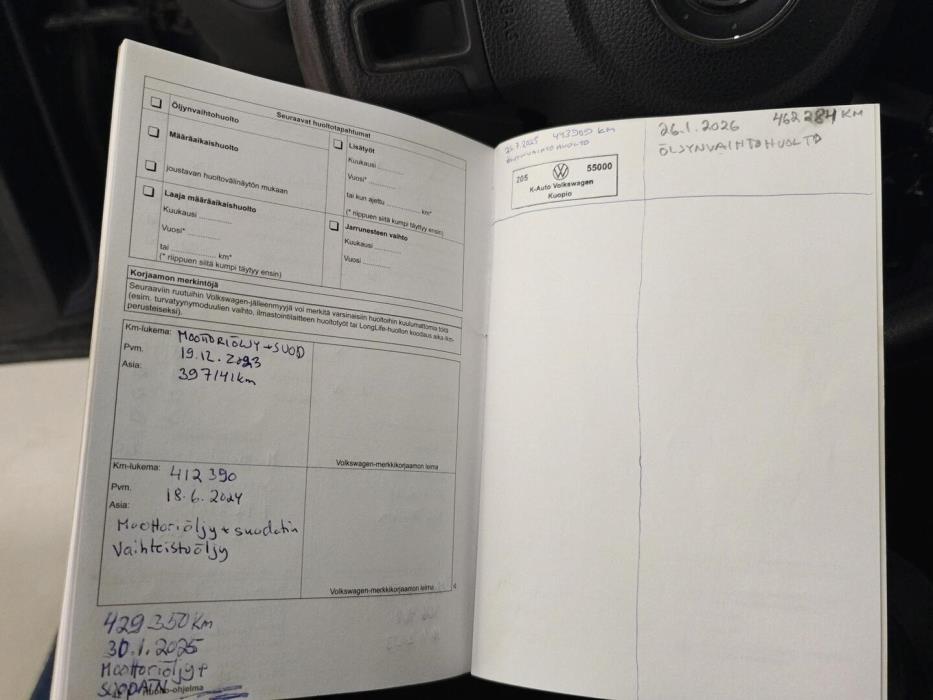 Seuraavat huoltotapahtumat
Öljynvaihtohuolto
Määräaikaishuolto
joustavan huoltovälinäytön mukaan
Laaja määräaikaishuolto
Kuukausi ............
Vuosi* ............
tai ............ km*
(* riippuen siitä kumpi täytyy ensin)
Lisätyöt
Kuukausi ............
Vuosi* ............
tai kun ajettu ............ km*
(* riippuen siitä kumpi täytyy ensin)
Jarrunesteen vaihto
Kuukausi ............
Vuosi ............
Korjaamon merkintöjä
Seuraaviin ruutuihin Volkswagen-jälleenmyyjä voi merkitä varsinaisiin huoltoihin kuulumattomia töitä
(esim. turvatyynymoduulien vaihto, ilmastointilaitteen huoltotyöt tai LongLife-huollon koodaus aika-/km-
perusteiseksi).
Km-lukema: MOOTTORIÖLJY + SUOD
Pvm. 19.12.2023
Asia: 397141km
Volkswagen-merkkikorjaamon leima
Km-lukema: 412 390
Pvm. 18.6.2024
Asia:
Moottoriöljy + suodatin
Vaihteistoöljy
Volkswagen-merkkikorjaamon leima
429350Km
30.1.2025
Moottoriöljy +
-ohjelma
AIRBAG
2025 km
ÖLJYNVAIHTOHUOLTO
205 55000
K-Auto Volkswagen
Kuopio
26.1.2026 462284 KM
ÖLJYNVAIHTOHUOLTO